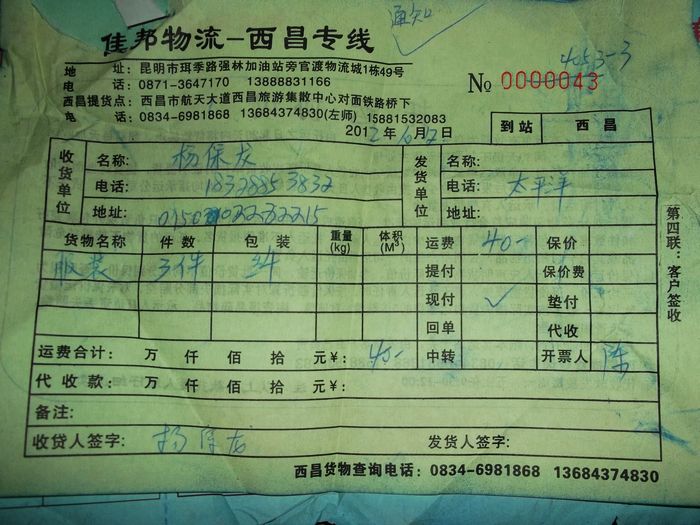 通知
佳邦物流-西昌专线
4053-3
地 址：昆明市珥季路强林加油站旁官渡物流城1栋49号
电 话：0871-3647170 13888831166
№ 0000043
西昌提货点：西昌市航天大道西昌旅游集散中心对面铁路桥下
电 话：0834-6981868 13684374830(左师) 15881532083
2012年10月12日 到站 西昌
收货单位 名称：杨保龙 发货单位 名称：
电话：18328853832 电话：太平洋
地址： 地址：
货物名称 件数 包装 重量(kg) 体积(M³) 运费 40- 保价
服装 3件 纤 提付 保价费
现付 ✓ 垫付
回单 代收
运费合计： 万 仟 佰 拾 元¥：40- 中转 开票人 陈
代收款： 万 仟 佰 拾 元¥：
备注：
收货人签字：杨保龙 发货人签字：
西昌货物查询电话：0834-6981868 13684374830
第四联：客户签收